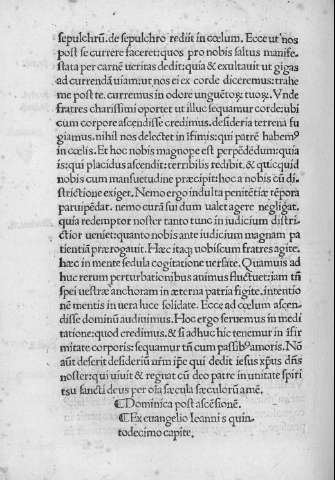 sepulchrū. de sepulchro rediit in cœlum. Ecce ut nos
post se currere faceret: quos pro nobis saltus manife
stata per carnē ueritas dedit: quia & exultauit ut gigas
ad currendā uiam: ut nos ei ex corde diceremus: trahe
me post te. curremus in odore unguētoꝝ tuoꝝ. Vnde
fratres charissimi oportet ut illuc sequamur corde: ubi
eum corpore ascendisse credimus. desideria terrena fu
giamus. nihil nos delectet in ifimis: qui patrē habemꝰ
in cœlis. Et hoc nobis magnope est perpēdēdum: quia
is: qui placidus ascendit: terribilis redibit. & quicquid
nobis cum mansuetudine præcipit: hoc a nobis cū di
strictione exiget. Nemo ergo indulta penitētiæ tēpora
paruipēdat. nemo curā sui dum ualet agere negligat.
quia redemptor noster tanto tunc in iudicium distri
ctior ueniet: quanto nobis ante iudicium magnam pa
tientiā prærogauit. Hæc itaqꝫ uobiscum fratres agite.
hæc in mente sedula cogitatione uersate. Quamuis ad
huc rerum perturbationibus animus fluctuet: iam tñ
spei uestræ anchoram in æterna patria figite. intentio
nē mentis in uera luce solidate. Ecce ad cœlum ascen
disse dominū audiuimus. Hoc ergo seruemus in medi
tatione: quod credimus. & si adhuc hic tenemur in ifir
mitate corporis: sequamur tñ eum passibꝰ amoris. Nō
aūt deserit desideriū nr̄m ip̄e qui dedit iesus xp̄us dn̄s
noster: qui uiuit & regnat cū deo patre in unitate spiri
tus sancti deus per oīa sæcula sæculorū amē.
⁋Dominica post ascēsionē.
⁋Ex euangelio Ioannis quin
todecimo capite.